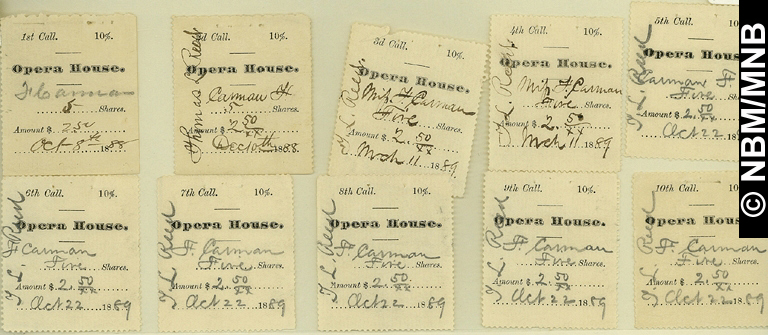 1st Call. 10%.
Opera House.
F Carman
5 Shares.
Amount $ 2 50
Oct 8th 1888
2d Call. 10%.
Opera House.
Carman F
5 Shares.
Amount $ 2 50/xx
Dec 10th 1888
Thomas L Reed
3d Call. 10%.
Opera House.
Miss F. Carman
Five Shares.
Amount $ 2. 50/xx
Mch 11 1889
T. L. Reed
4th Call. 10%.
Opera House.
Miss F. Carman
Five Shares.
Amount $ 2 50/xx
Mch 11 1889
T. L. Reed
5th Call. 10%.
Opera House.
Carman F
Five Shares.
Amount $ 2. 50/xx
Oct 22 18
T. L. Reed
6th Call. 10%.
Opera House.
F Carman
Five Shares.
Amount $ 2. 50/xx
Oct 22 1889
T L Reed
7th Call. 10%.
Opera House.
F. Carman
Five Shares.
Amount $ 2. 50/xx
Oct 22 1889
T L Reed
8th Call. 10%.
Opera House.
F Carman
Five Shares.
Amount $ 2 50/xx
Oct 22 1889
T L Reed
9th Call. 10%.
Opera House.
F Carman
Five Shares.
Amount $ 2 50/xx
Oct 22 1889
T L Reed
10th Call. 10%.
Opera House.
F. Carman
Five Shares.
Amount $ 2 50/xx
Oct 22 1889
T L Reed
© NBM/MNB